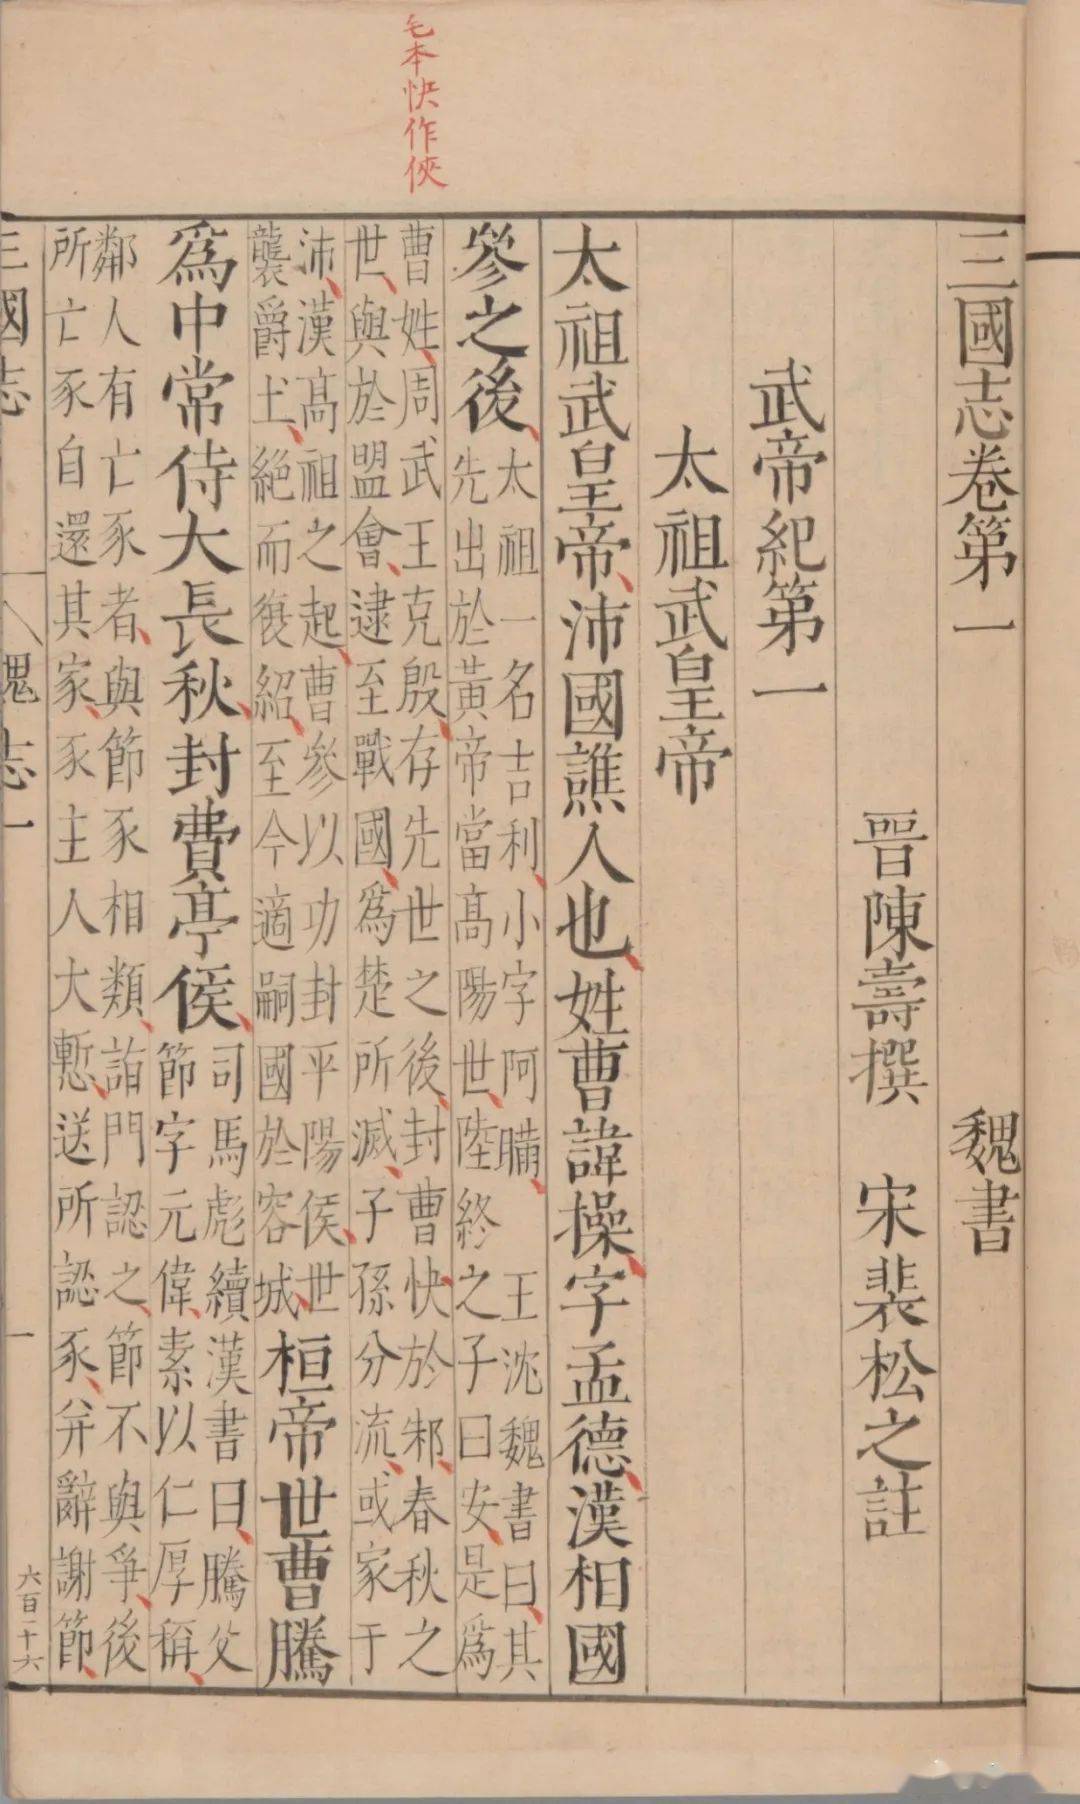 毛本快作俠
三國志卷第一　魏書
晉陳壽撰　宋裴松之註
武帝紀第一
太祖武皇帝
太祖武皇帝沛國譙人也姓曹諱操字孟德漢相國
參之後
太祖一名吉利小字阿瞞　王沈魏書曰其
先出於黃帝當高陽世陸終之子曰安是爲
曹姓周武王克殷存先世之後封曹快於邾春秋之
世與於盟會逮至戰國爲楚所滅子孫分流或家于
沛漢高祖之起曹參以功封平陽侯世
襲爵土絕而復紹至今適嗣國於容城
桓帝世曹騰
爲中常侍大長秋封費亭侯
司馬彪續漢書曰騰父
節字元偉素以仁厚稱
鄰人有亡豕者與節豕相類詣門認之節不與爭後
所亡豕自還其家豕主人大慙送所認豕并辭謝節
三國志　魏志一　一　六百二十六